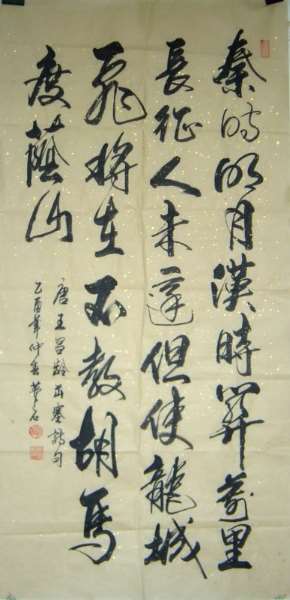 秦時明月漢時關萬里
長征人未還但使龍城
飛將在不教胡馬
度蔭山
唐王昌齡出塞詩句
乙酉年仲石